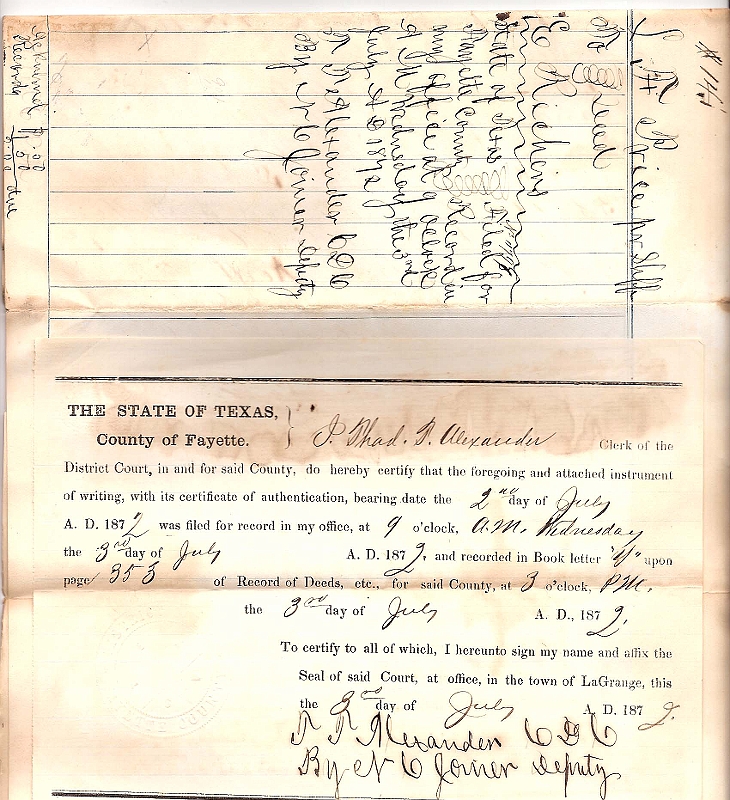 $ 145
S. A. Price pr Shff
To Deed
E Richers
State of Texas
Fayette County Filed for
Record in
my office at 9 oclock
A M Wednsday the 3rd
July A D 1872
T. T. Alexander C D C
By N C Joiner Deputy
Record 1.00
2.00 due
THE STATE OF TEXAS,
County of Fayette.
I. Thad. T. Alexander Clerk of the
District Court, in and for said County, do hereby certify that the foregoing and attached instrument
of writing, with its certificate of authentication, bearing date the 2nd day of July
A. D. 1872 was filed for record in my office, at 9 o'clock, A.M. Wednesday
the 3rd day of July A. D. 1872, and recorded in Book letter upon
page 353 of Record of Deeds, etc., for said County, at 3 o'clock, P.M.
the 3rd day of July A. D., 1872.
To certify to all of which, I hereunto sign my name and affix the
Seal of said Court, at office, in the town of LaGrange, this
the 3rd day of July A. D. 1872.
T. T. Alexander C D C
By N C Joiner Deputy